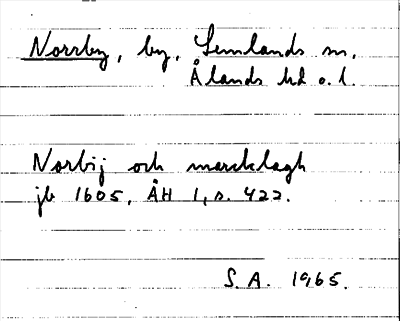 Norrby, by, Lemlands sn,
Ålands hd o. l.
Norbij och marcklagh
jb 1605, ÅH 1, s. 422.
S. A. 1965.